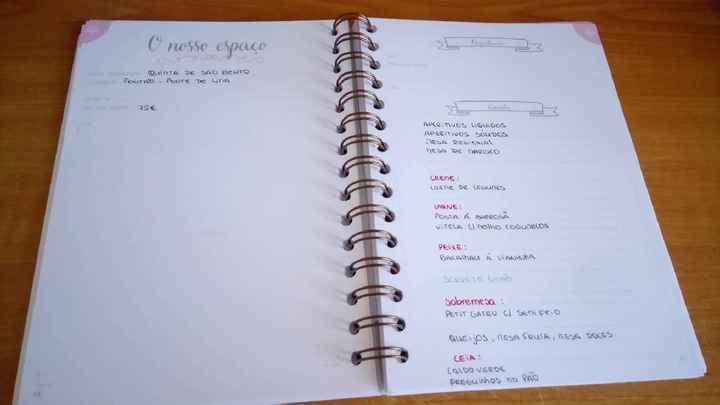 O nosso espaço
QUINTA DE SÃO BENTO
PONTE DE LIMA
75€
Ementa
APERITIVOS LIQUIDOS
APERITIVOS SOLIDOS
MESA REGIONAL
MESA DE MARISCO
CREME:
CREME DE LEGUMES
CARNE:
POSTA À BARROSÃ
VITELA C/ MOLHO COGUMELOS
PEIXE:
BACALHAU À VIANINHA
SORVETE LIMÃO
Sobremesa:
PETIT GATEU C/ SEMI FRIO
QUEIJOS, MESA FRUTA, MESA DOCES
CEIA:
CALDO VERDE
PREGUINHOS NO PÃO